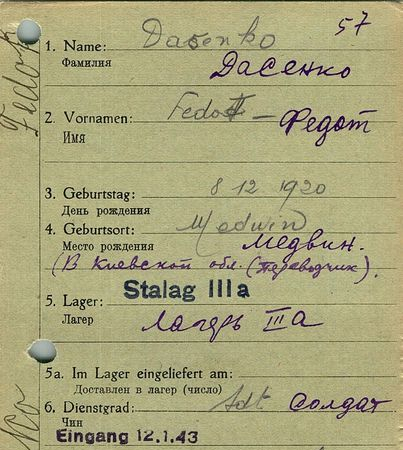 57
Fedot
1. Name: Dasenko
Фамилия Дасенко
2. Vornamen: Fedot – Федот
Имя
3. Geburtstag: 8 12. 1920
День рождения
4. Geburtsort: Medwin
Место рождения Медвин.
(В Киевской обл. (переводчик).
5. Lager: Stalag IIIa
Лагер Лагерь IIIА
5a. Im Lager eingeliefert am:
Доставлен в лагер (число)
6. Dienstgrad: Sdt Солдат
Чин
Eingang 12.1.43